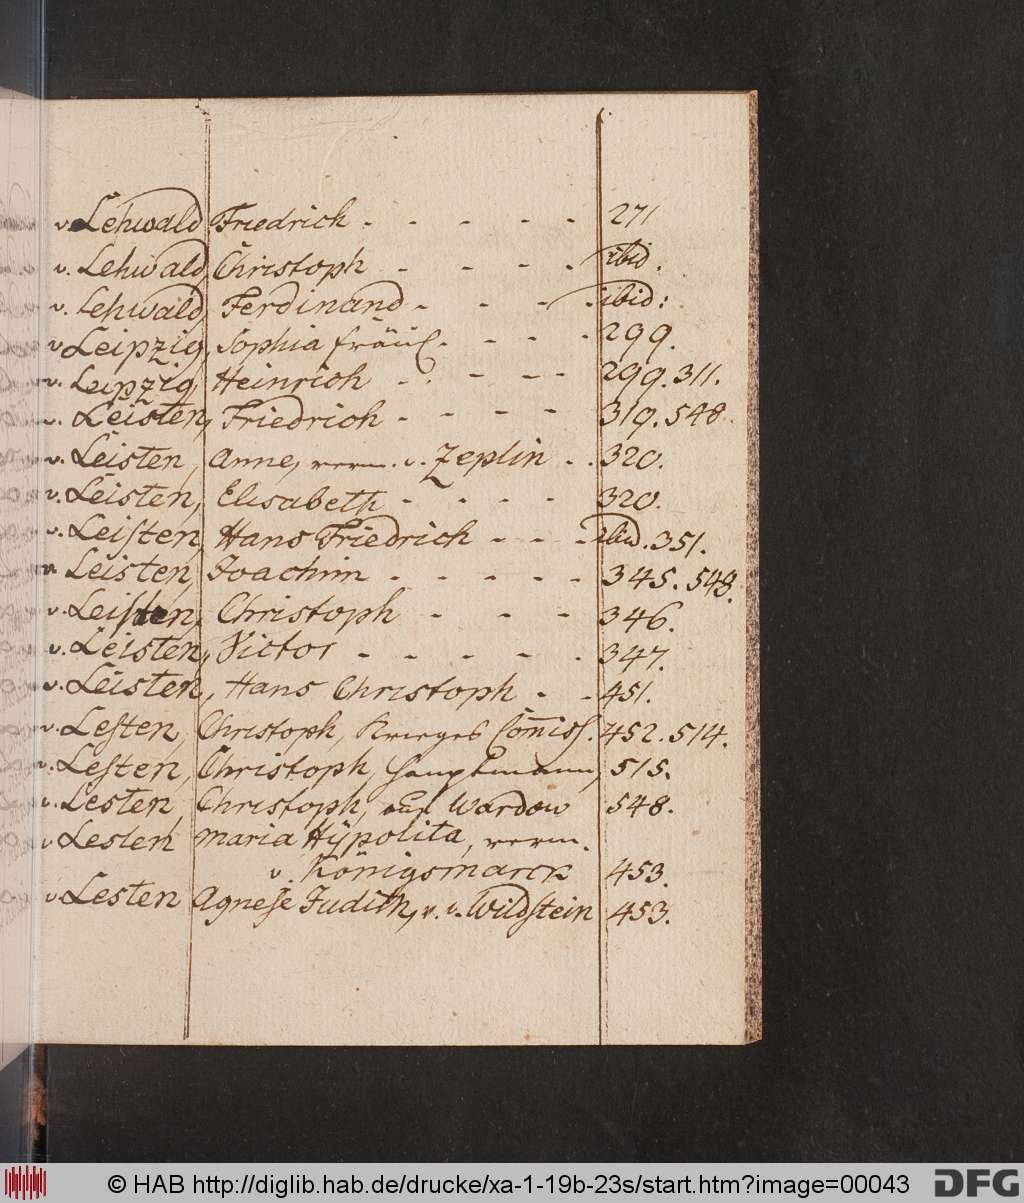 v. Lehwald Friedrich - - - - - 271
v. Lehwald, Christoph - - - - ibid.
v. Lehwald, Ferdinand - - - - ibid:
v Leipzig, Sophia Fräul. - - - 299.
v. Leipzig, Heinrich - - - - 299. 311.
v. Leisten, Friedrich - - - - 319. 548.
v. Leisten, Anne, verm. v. Zeplin - - 320.
v. Leisten, Elisabeth - - - - 320.
v. Leisten, Hans Friedrich - - - ibid. 351.
v. Leisten, Joachim - - - - - 345. 548.
v. Leisten, Christoph - - - 346.
v. Leisten, Victor - - - - - 347.
v. Leisten, Hans Christoph - - 451.
v. Lesten, Christoph, Krieges Com̄iss. 452. 514.
v. Lesten, Christoph, Hauptmann, 515.
v. Lesten Christoph, auf Wardow 548.
v Lesten Maria Hÿpolita, verm.
v. Königsmarck 453.
v. Lesten Agnese Judith, v. v. Wildstein 453.
© HAB http://diglib.hab.de/drucke/xa-1-19b-23s/start.htm?image=00043
DFG